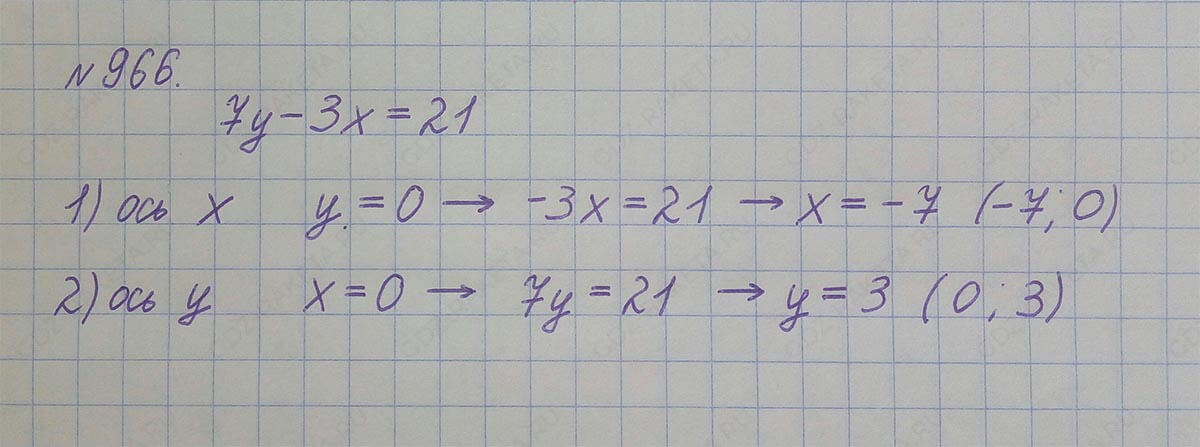 №966.
7y-3x=21
1) ось x y=0 → -3x=21 → x=-7 (-7; 0)
2) ось y x=0 → 7y=21 → y=3 (0; 3)